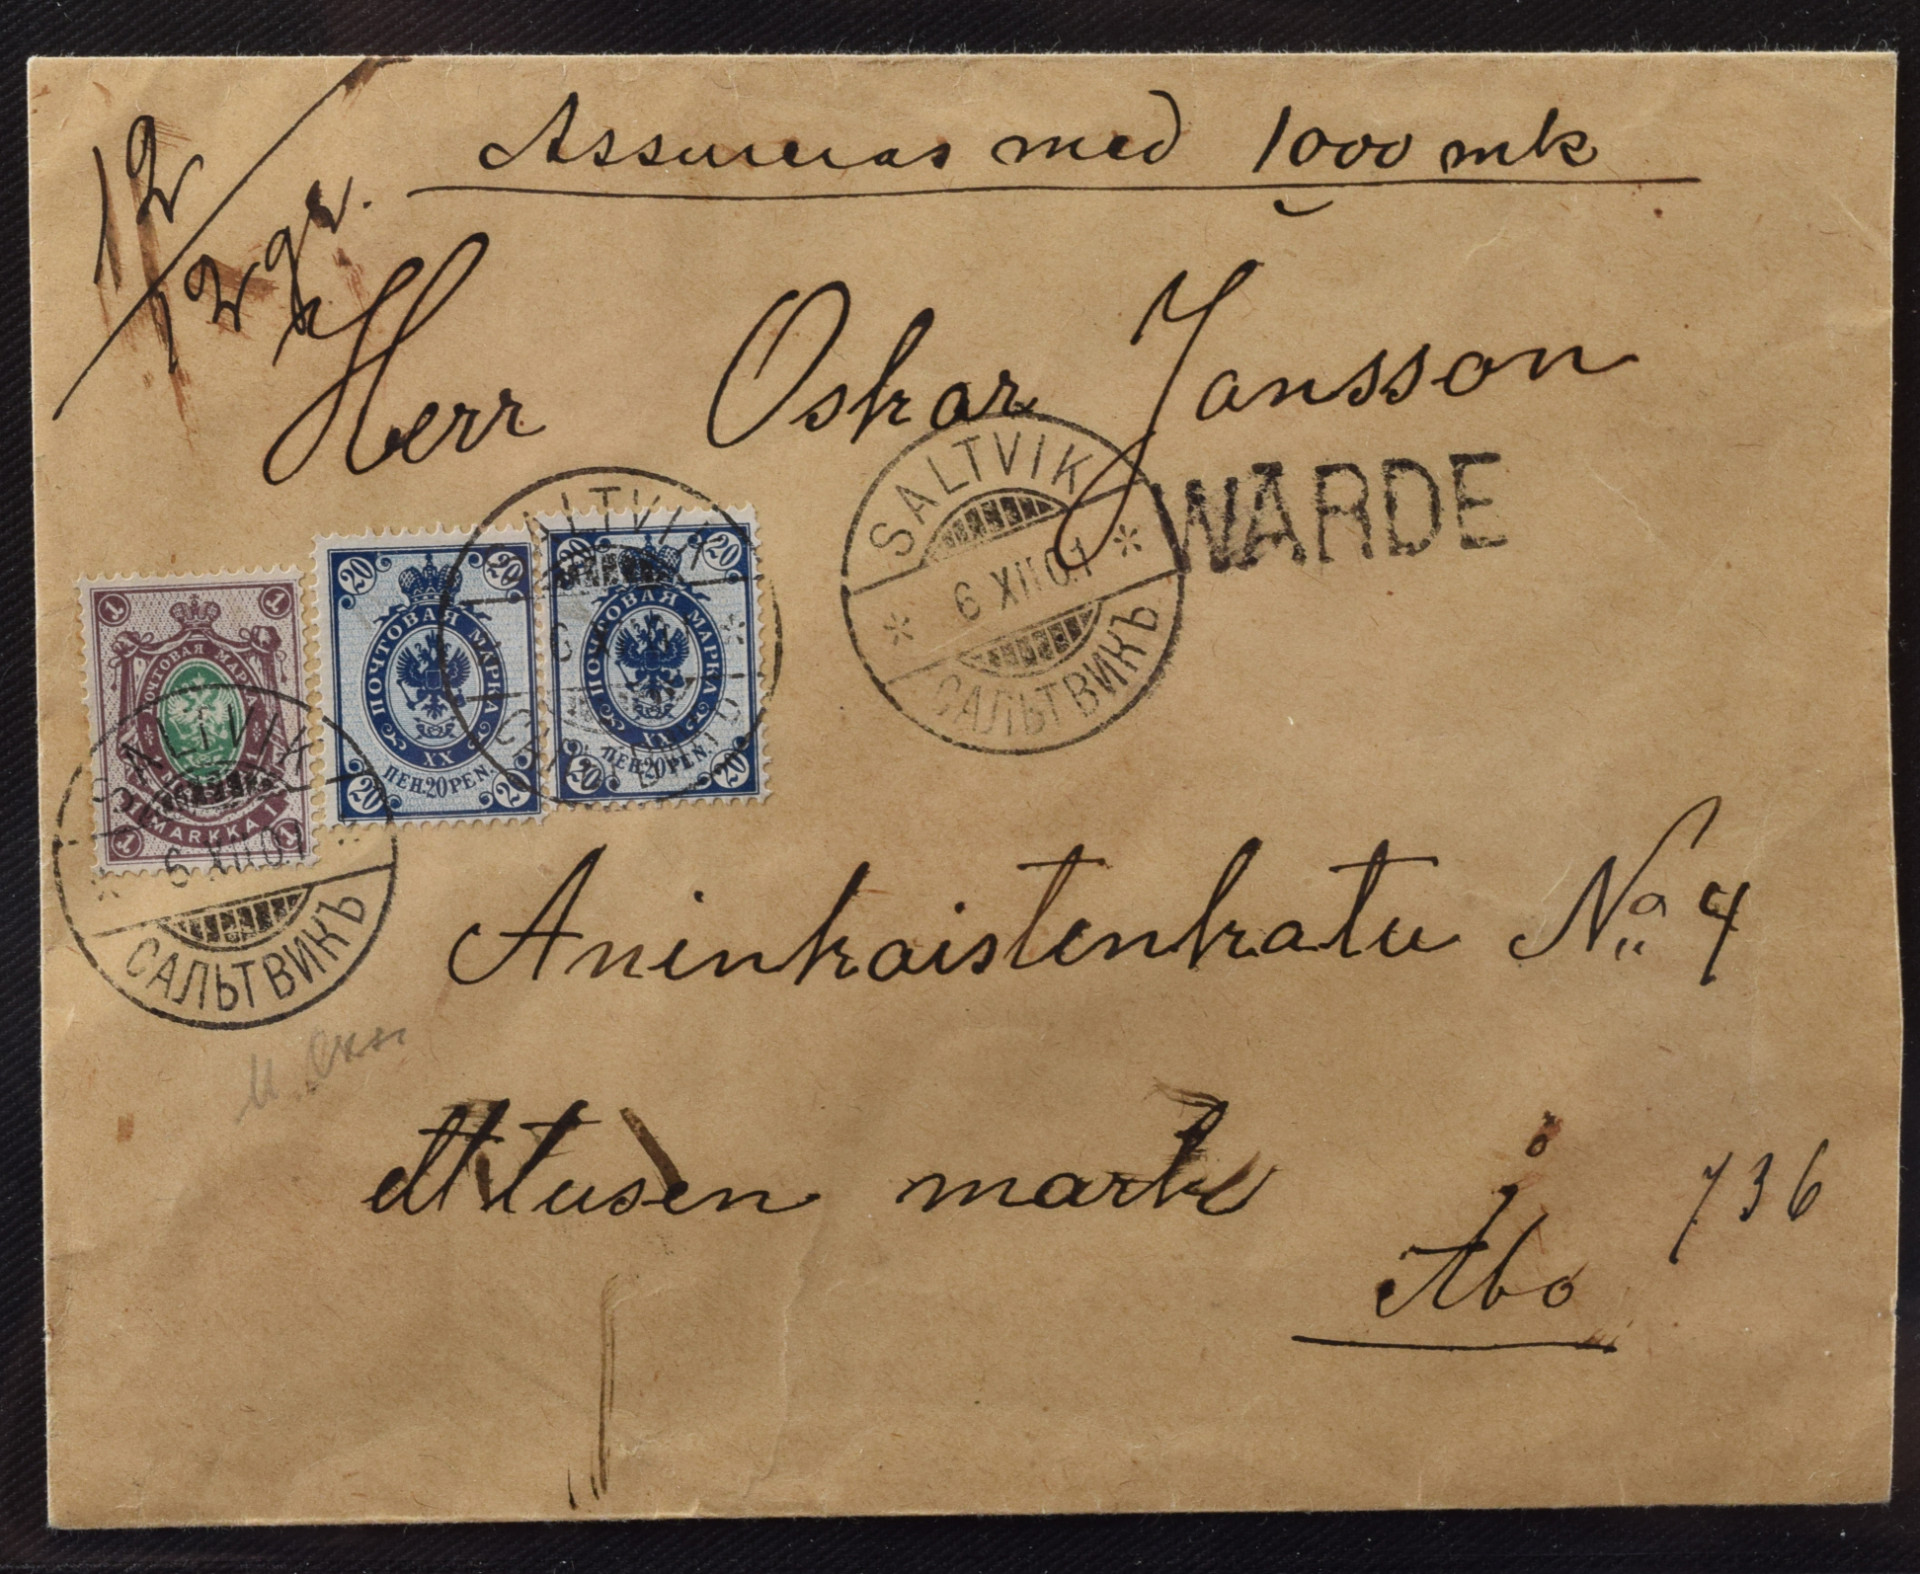 Assureras med 1000 mk
12
12 gr.
Herr Oskar Jansson
SALTVIK
6 XII 01
САЛЬТВИКЪ
WÄRDE
1 1
ПОЧТОВАЯ МАРКА
MARKKA
1 1
20 20
ПОЧТОВАЯ МАРКА
XX
ПЕН.20PEN.
20 20
20 20
ПОЧТОВАЯ МАРКА
XX
ПЕН.20PEN.
20 20
SALTVIK
SALTVIK
6 XII 01
САЛЬТВИКЪ
Aninkaistenkatu No 4
ett tusen mark
736
Åbo